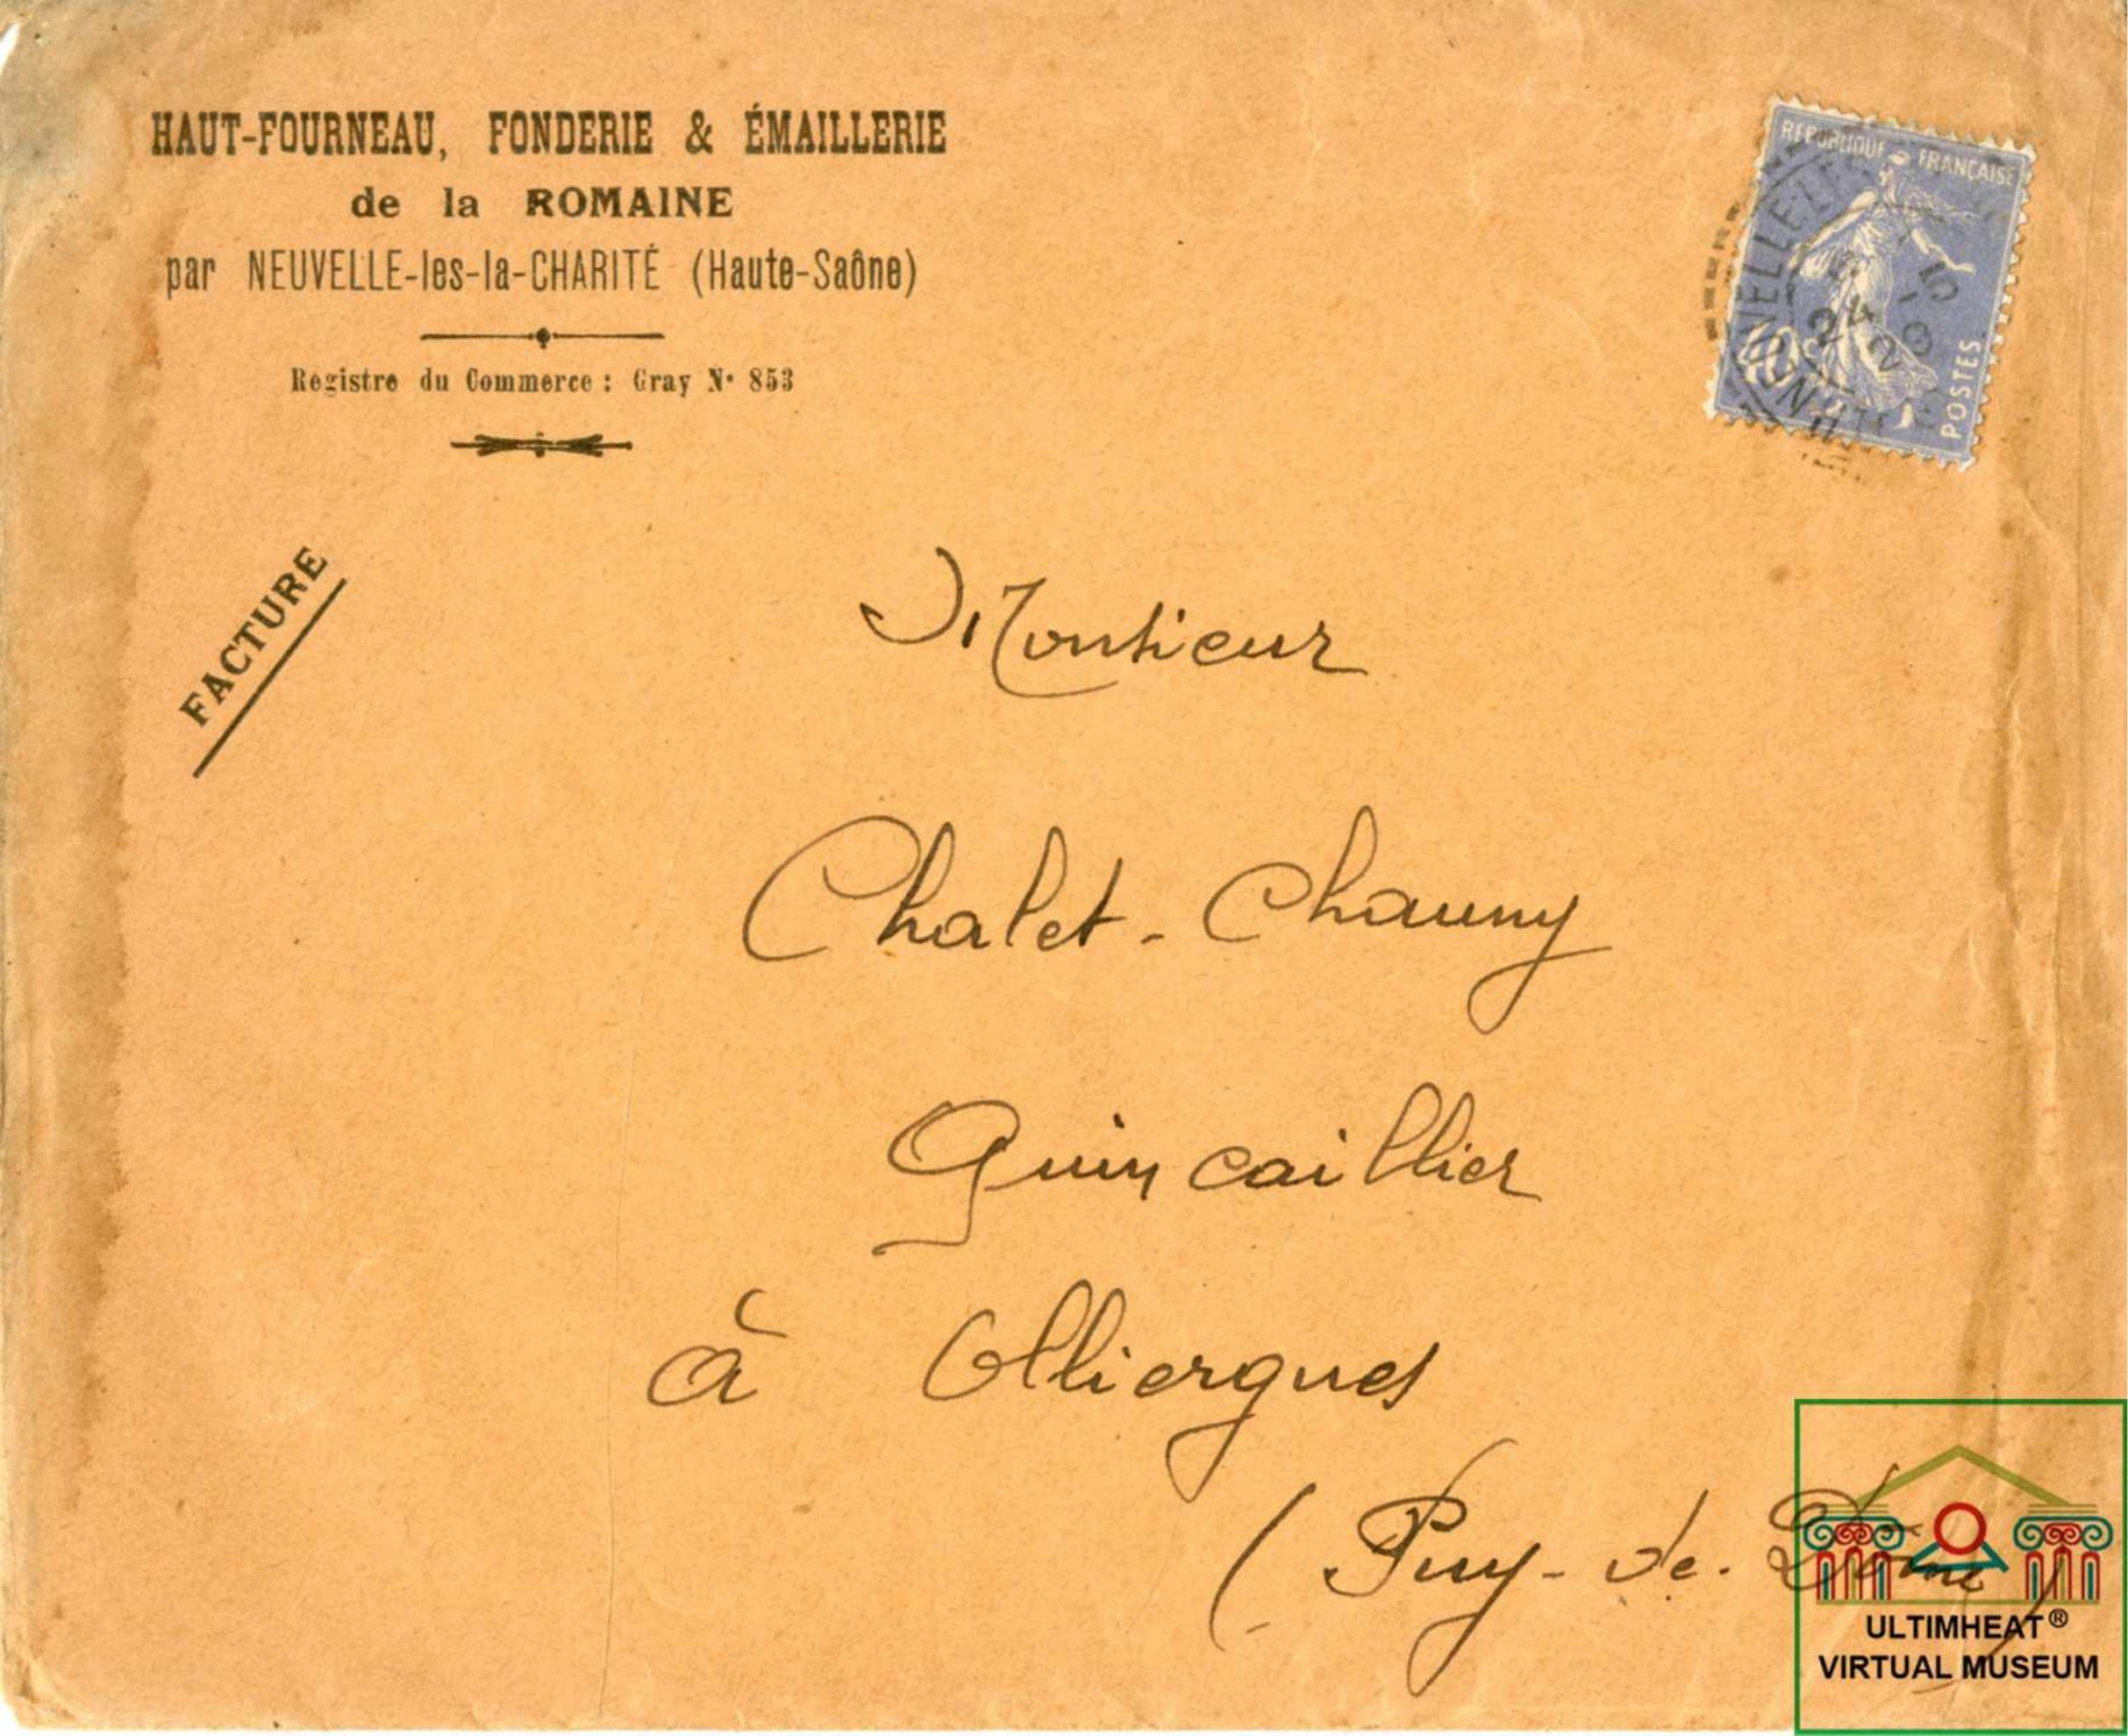 HAUT-FOURNEAU, FONDERIE & ÉMAILLERIE
de la ROMAINE
par NEUVELLE-les-la-CHARITÉ (Haute-Saône)
Registre du Commerce : Gray N° 853
REPUBLIQUE FRANÇAISE
40c
POSTES
24 -10
29
FACTURE
Monsieur
Chalet-Chauny
Quincaillier
à Olliergues
(Puy-de-Dôme)
ULTIMHEAT®
VIRTUAL MUSEUM